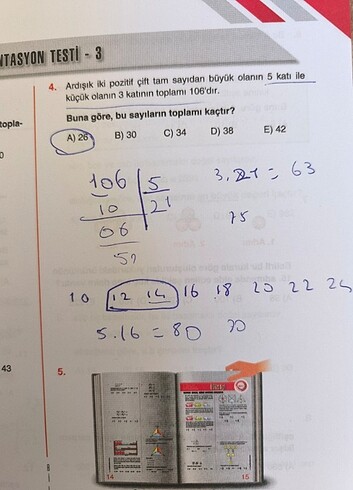 NTASYON TESTİ - 3
4. Ardışık iki pozitif çift tam sayıdan büyük olanın 5 katı ile
küçük olanın 3 katının toplamı 106'dır.
Buna göre, bu sayıların toplamı kaçtır?
A) 26 B) 30 C) 34 D) 38 E) 42
topla-
106 5
10 21
06
3. 21 = 63
75
10 12 14 16 18 20 22 24
5.16 = 80
43
5.
14 15